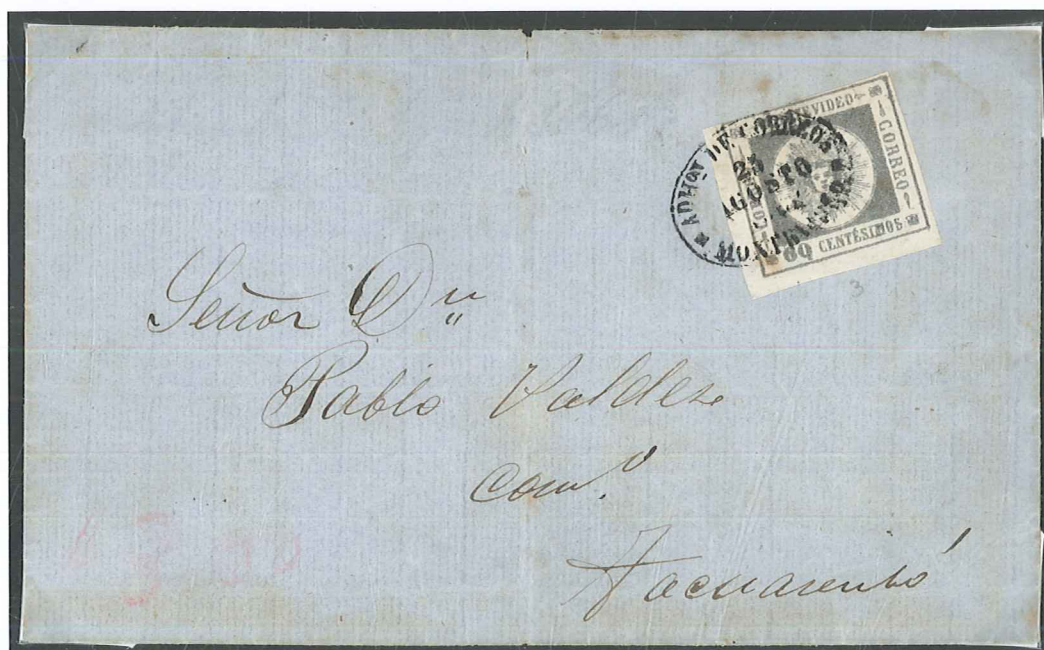 ADMON DE CORREOS
25
AGOSTO
MONTEVIDEO
CORREO
60 CENTÉSIMOS
3
Señor Dn
Pablo Valdez
Comº
Tacuarembó